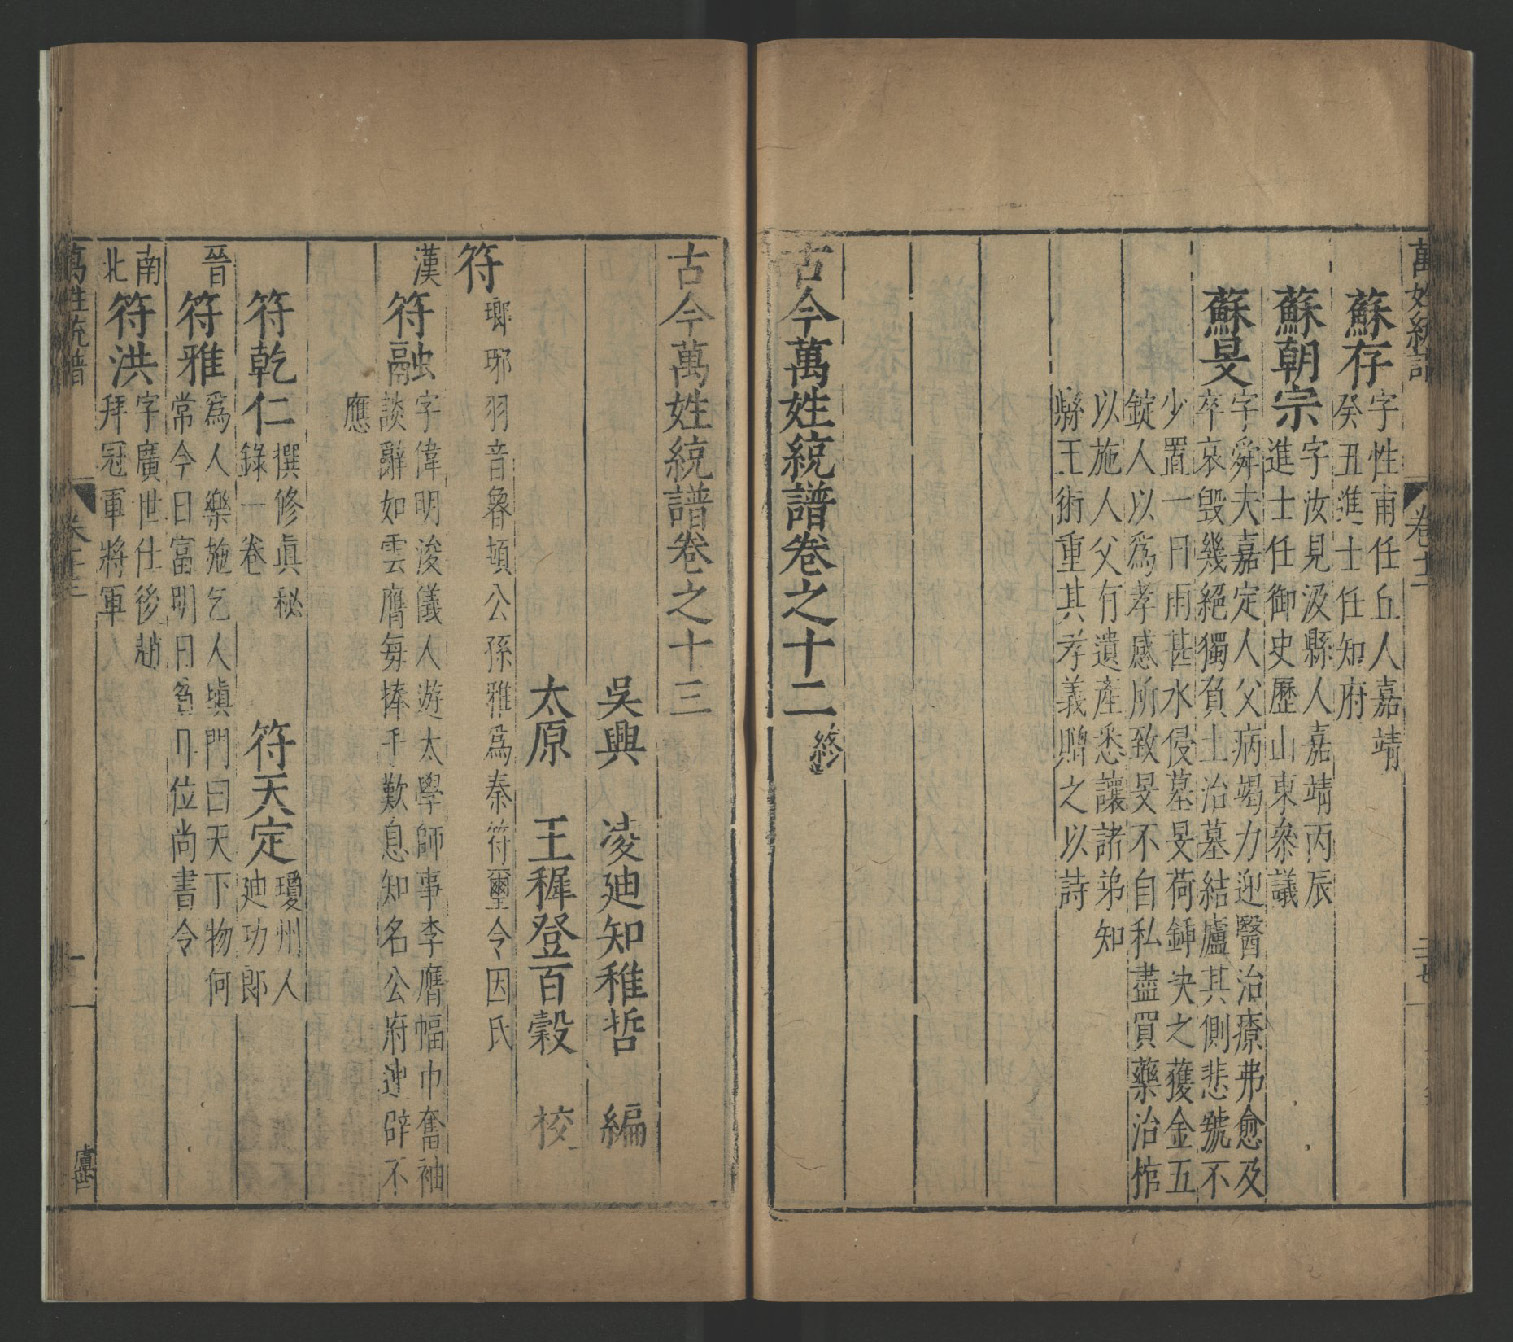 萬姓統譜
卷十二
蘇存字性甫任丘人嘉靖
癸丑進士任知府
蘇朝宗字汝見汲縣人嘉靖丙辰
進士任御史歷山東叅議
蘇旻字舜夫嘉定人父病竭力迎醫治療弗愈及
卒哀毀幾絕獨負土治墓結廬其側悲號不
少置一日雨甚水侵墓旻荷鍤决之獲金五
錠人以為孝感所致旻不自私盡買藥治棺
以施人父有遺產悉讓諸弟知
縣王術重其孝義贈之以詩
古今萬姓統譜卷之十二終
古今萬姓統譜卷之十三
吳興 凌迪知稚哲 編
太原 王穉登百穀 校
符瑯琊羽音魯頃公孫雅爲秦符璽令因氏
漢符融字偉明浚儀人遊太學師事李膺幅巾奮袖
談辭如雲膺每捧手歎息知名公府迚辟不
應
符乾仁撰修眞秘
錄一卷
符天定瓊州人
迪功郎
晉符雅爲人樂施乞人塡門曰天下物何
常今日富明日貧耳位尚書令
南北符洪字廣世仕後趙
拜冠軍將軍
萬姓統譜
卷十三
一